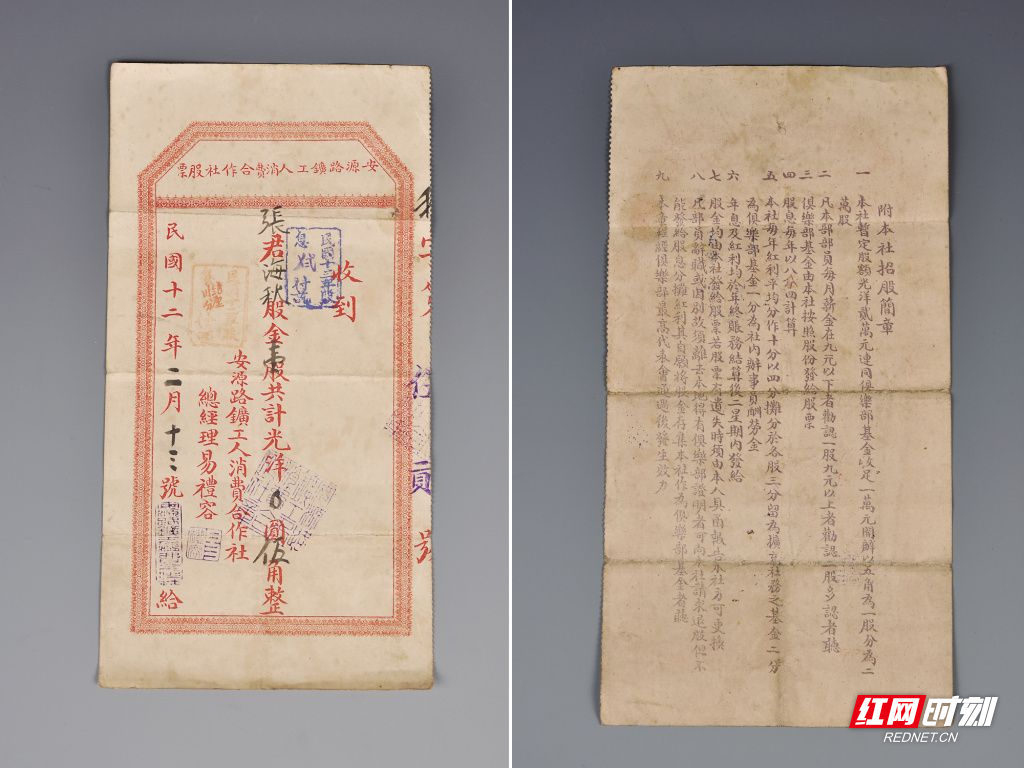 安源路鑛工人消費合作社股票
收到
張君海秋股金壹股共計光洋0圓伍角整
安源路鑛工人消費合作社
總經理易禮容
民國十二年二月十三號
給
號
附本社招股簡章
一 本社暫定股額光洋貳萬元連同俱樂部基金收足一萬元開辦以五角為一股分為二
萬股
二 凡本部部員每月薪金在九元以下者勸認一股九元以上者勸認二股多認者聽
三 俱樂部基金由本社按照股份發給股票
四 股息每年以八分四計算
五 本社每年紅利平均分作十分以四分攤分於各股三分留為擴充社務之基金二分
為俱樂部基金一分為社內辦事員酬勞金
六 年息及紅利均於年終賬務結算後二星期內發給
七 股金均由本社發給股票若股票有遺失時須由本人具函報告本社方可更換
八 凡部員辭職或因別故須離去本地得有俱樂部證明者可向本社請求退股但不
能發給股息分攤紅利其自願將股金存集本社作為俱樂部基金者聽
九 本章程經俱樂部最高代表會通過後發生效力
红网时刻
REDNET.CN